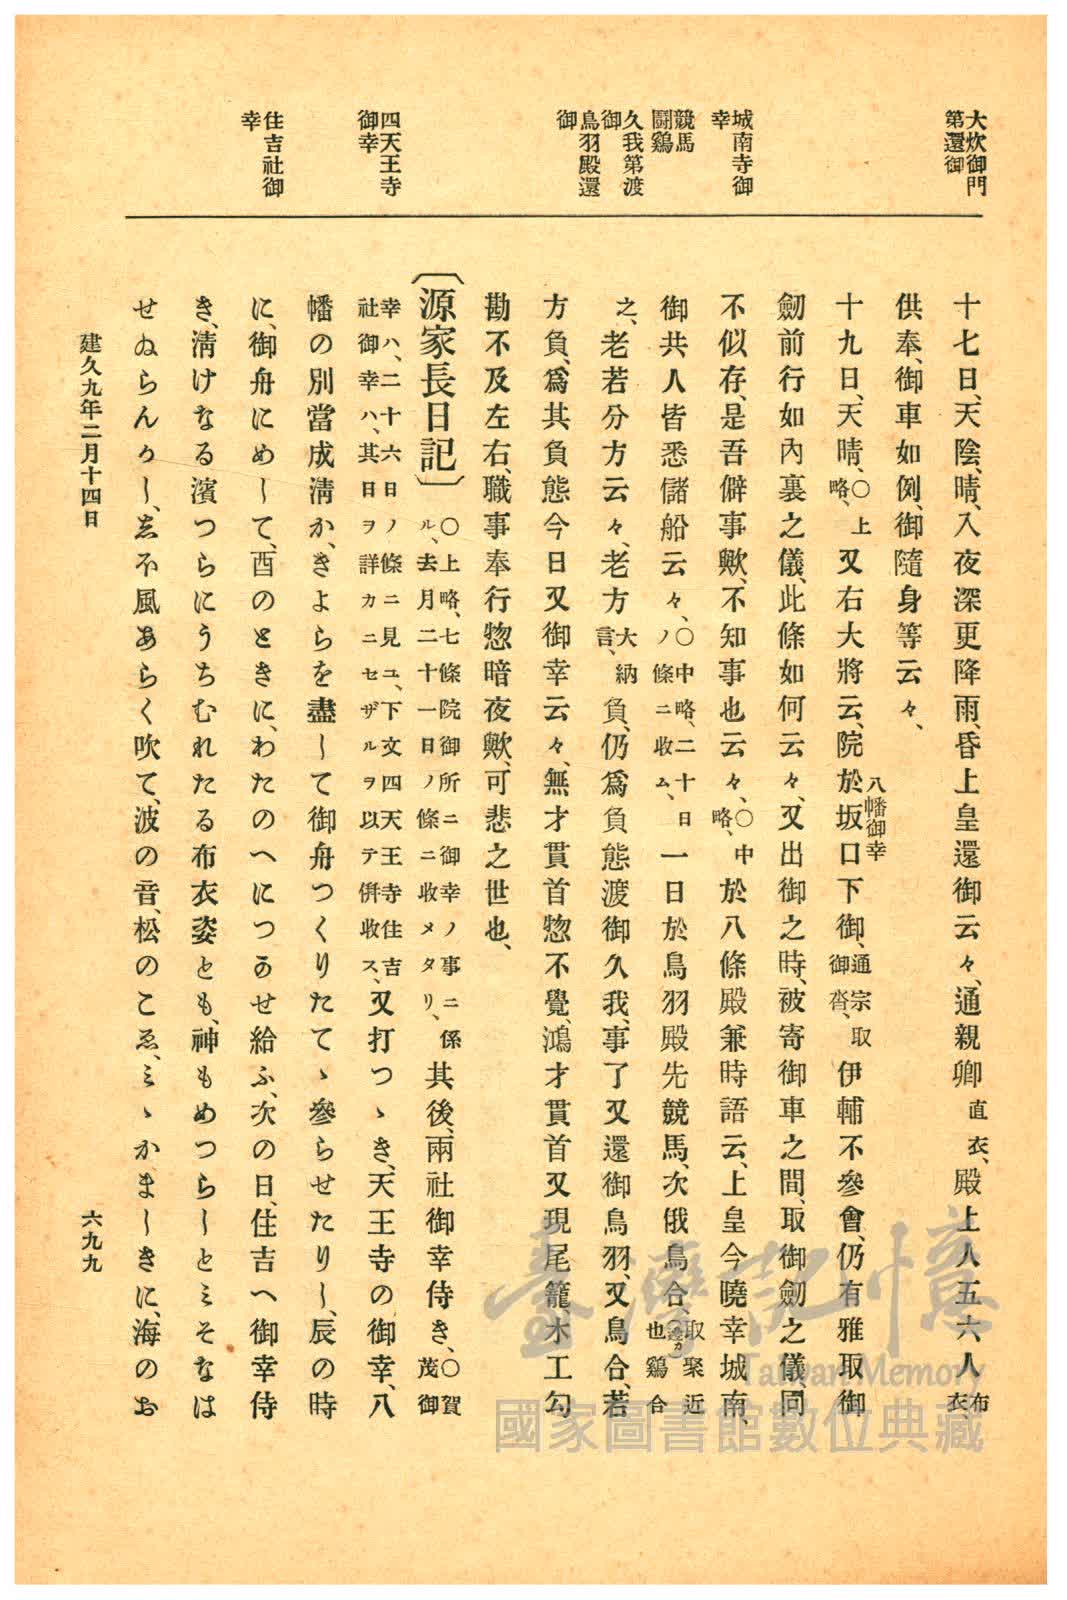 大炊御門
第還御
城南寺御
幸
競馬
鬪鷄
久我第渡
御
鳥羽殿還
御
四天王寺
御幸
住吉社御
幸
十七日、天陰、晴、入夜深更降雨、昏上皇還御云々、通親卿直衣、殿上人五六人布衣、
供奉、御車如例、御隨身等云々、
十九日、天晴、〇上略、又右大將云、院於坂口下御、八幡御幸通宗取御沓、伊輔不參會、仍有雅取御
劒前行如內裏之儀、此條如何云々、又出御之時、被寄御車之間、取御劒之儀、同
不似存、是吾僻事歟、不知事也云々、〇中略、於八條殿兼時語云、上皇今曉幸城南、
御共人皆悉儲船云々、〇中略、二十日ノ條ニ收ム、一日於鳥羽殿先競馬、次俄鳥合、取聚近也鷄合
之、老若分方云々、老方大納言、負、仍爲負態渡御久我、事了又還御鳥羽、又鳥合、若
方負、爲其負態今日又御幸云々、無才貫首惣不覺、鴻才貫首又現尾籠、木工勾
勘不及左右、職事奉行惣暗夜歟、可悲之世也、
〔源家長日記〕〇上略、七條院御所ニ御幸ノ事ニ係ル、去月二十一日ノ條ニ收メタリ、其後、兩社御幸侍き、〇賀茂御
幸ハ、二十六日ノ條ニ見ユ、下文四天王寺住吉社御幸ハ、其日ヲ詳カニセザルヲ以テ併收ス、又打つゝき、天王寺の御幸、八
幡の別當成淸か、きよらを盡して御舟つくりたてゝ參らせたりし、辰の時
に、御舟にめして、酉のときに、わたのへにつかせ給ふ、次の日、住吉へ御幸侍
き、淸けなる濱つらにうちむれたる布衣姿とも、神もめつらしとミそなは
せゐらんかし、ゑ不風あらく吹て、波の音、松のこゑ、ミゝかましきに、海のお
建久九年二月十四日
六九九
臺灣記憶
Taiwan Memory
國家圖書館數位典藏